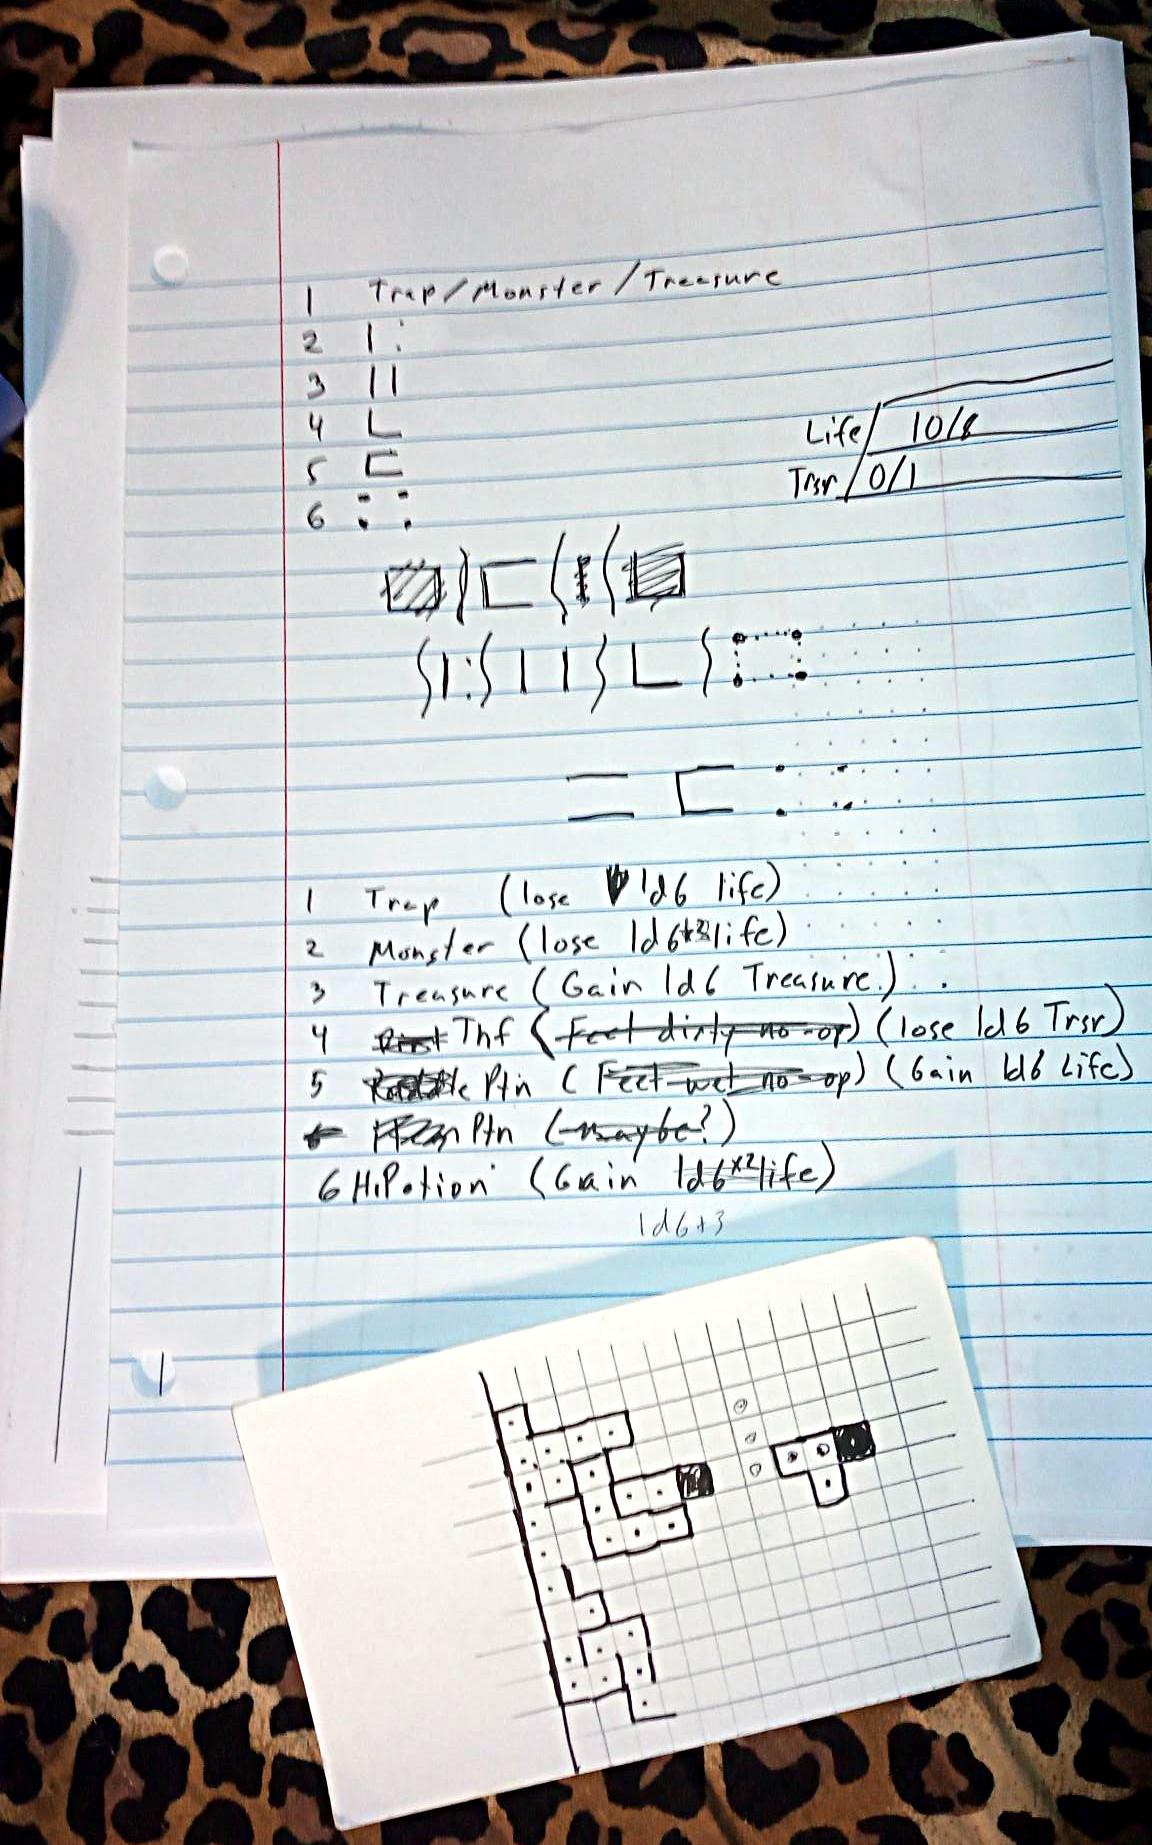 1 Trap/Monster/Treasure
2
3
4
5
6
Life 10/8
Trsr 0/1
1 Trap (lose 1d6 life)
2 Monster (lose 1d6+3 life)
3 Treasure (Gain 1d6 Treasure)
4 Thf (Feet dirty no-op) (lose 1d6 Trsr)
5 Ptn (Feet wet no-op) (Gain 1d6 Life)
Ptn (maybe?)
6 HiPotion (Gain 1d6x2 life)
1d6+3